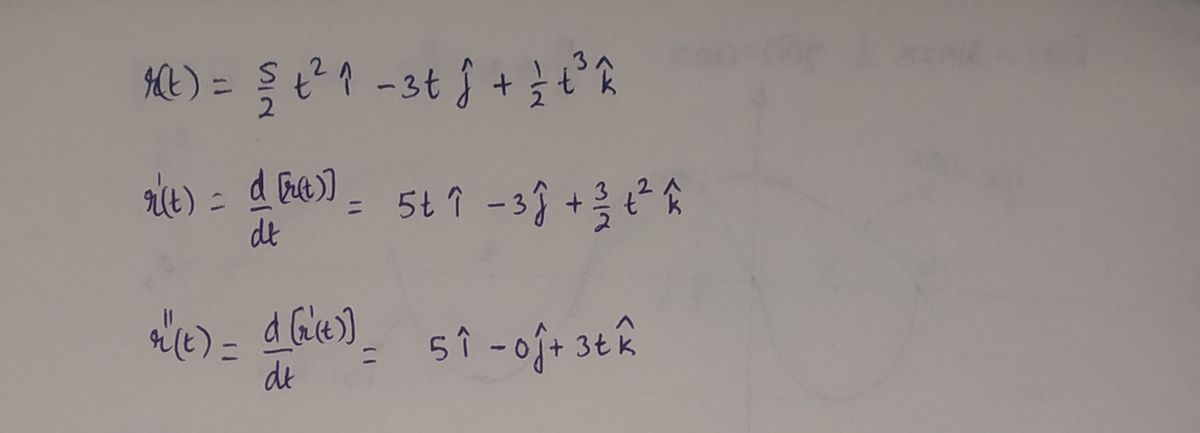 r(t) = 5/2 t² î - 3t ĵ + 1/2 t³ k̂
r'(t) = d[r(t)]/dt = 5t î - 3ĵ + 3/2 t² k̂
r''(t) = d[r'(t)]/dt = 5 î - 0ĵ + 3t k̂